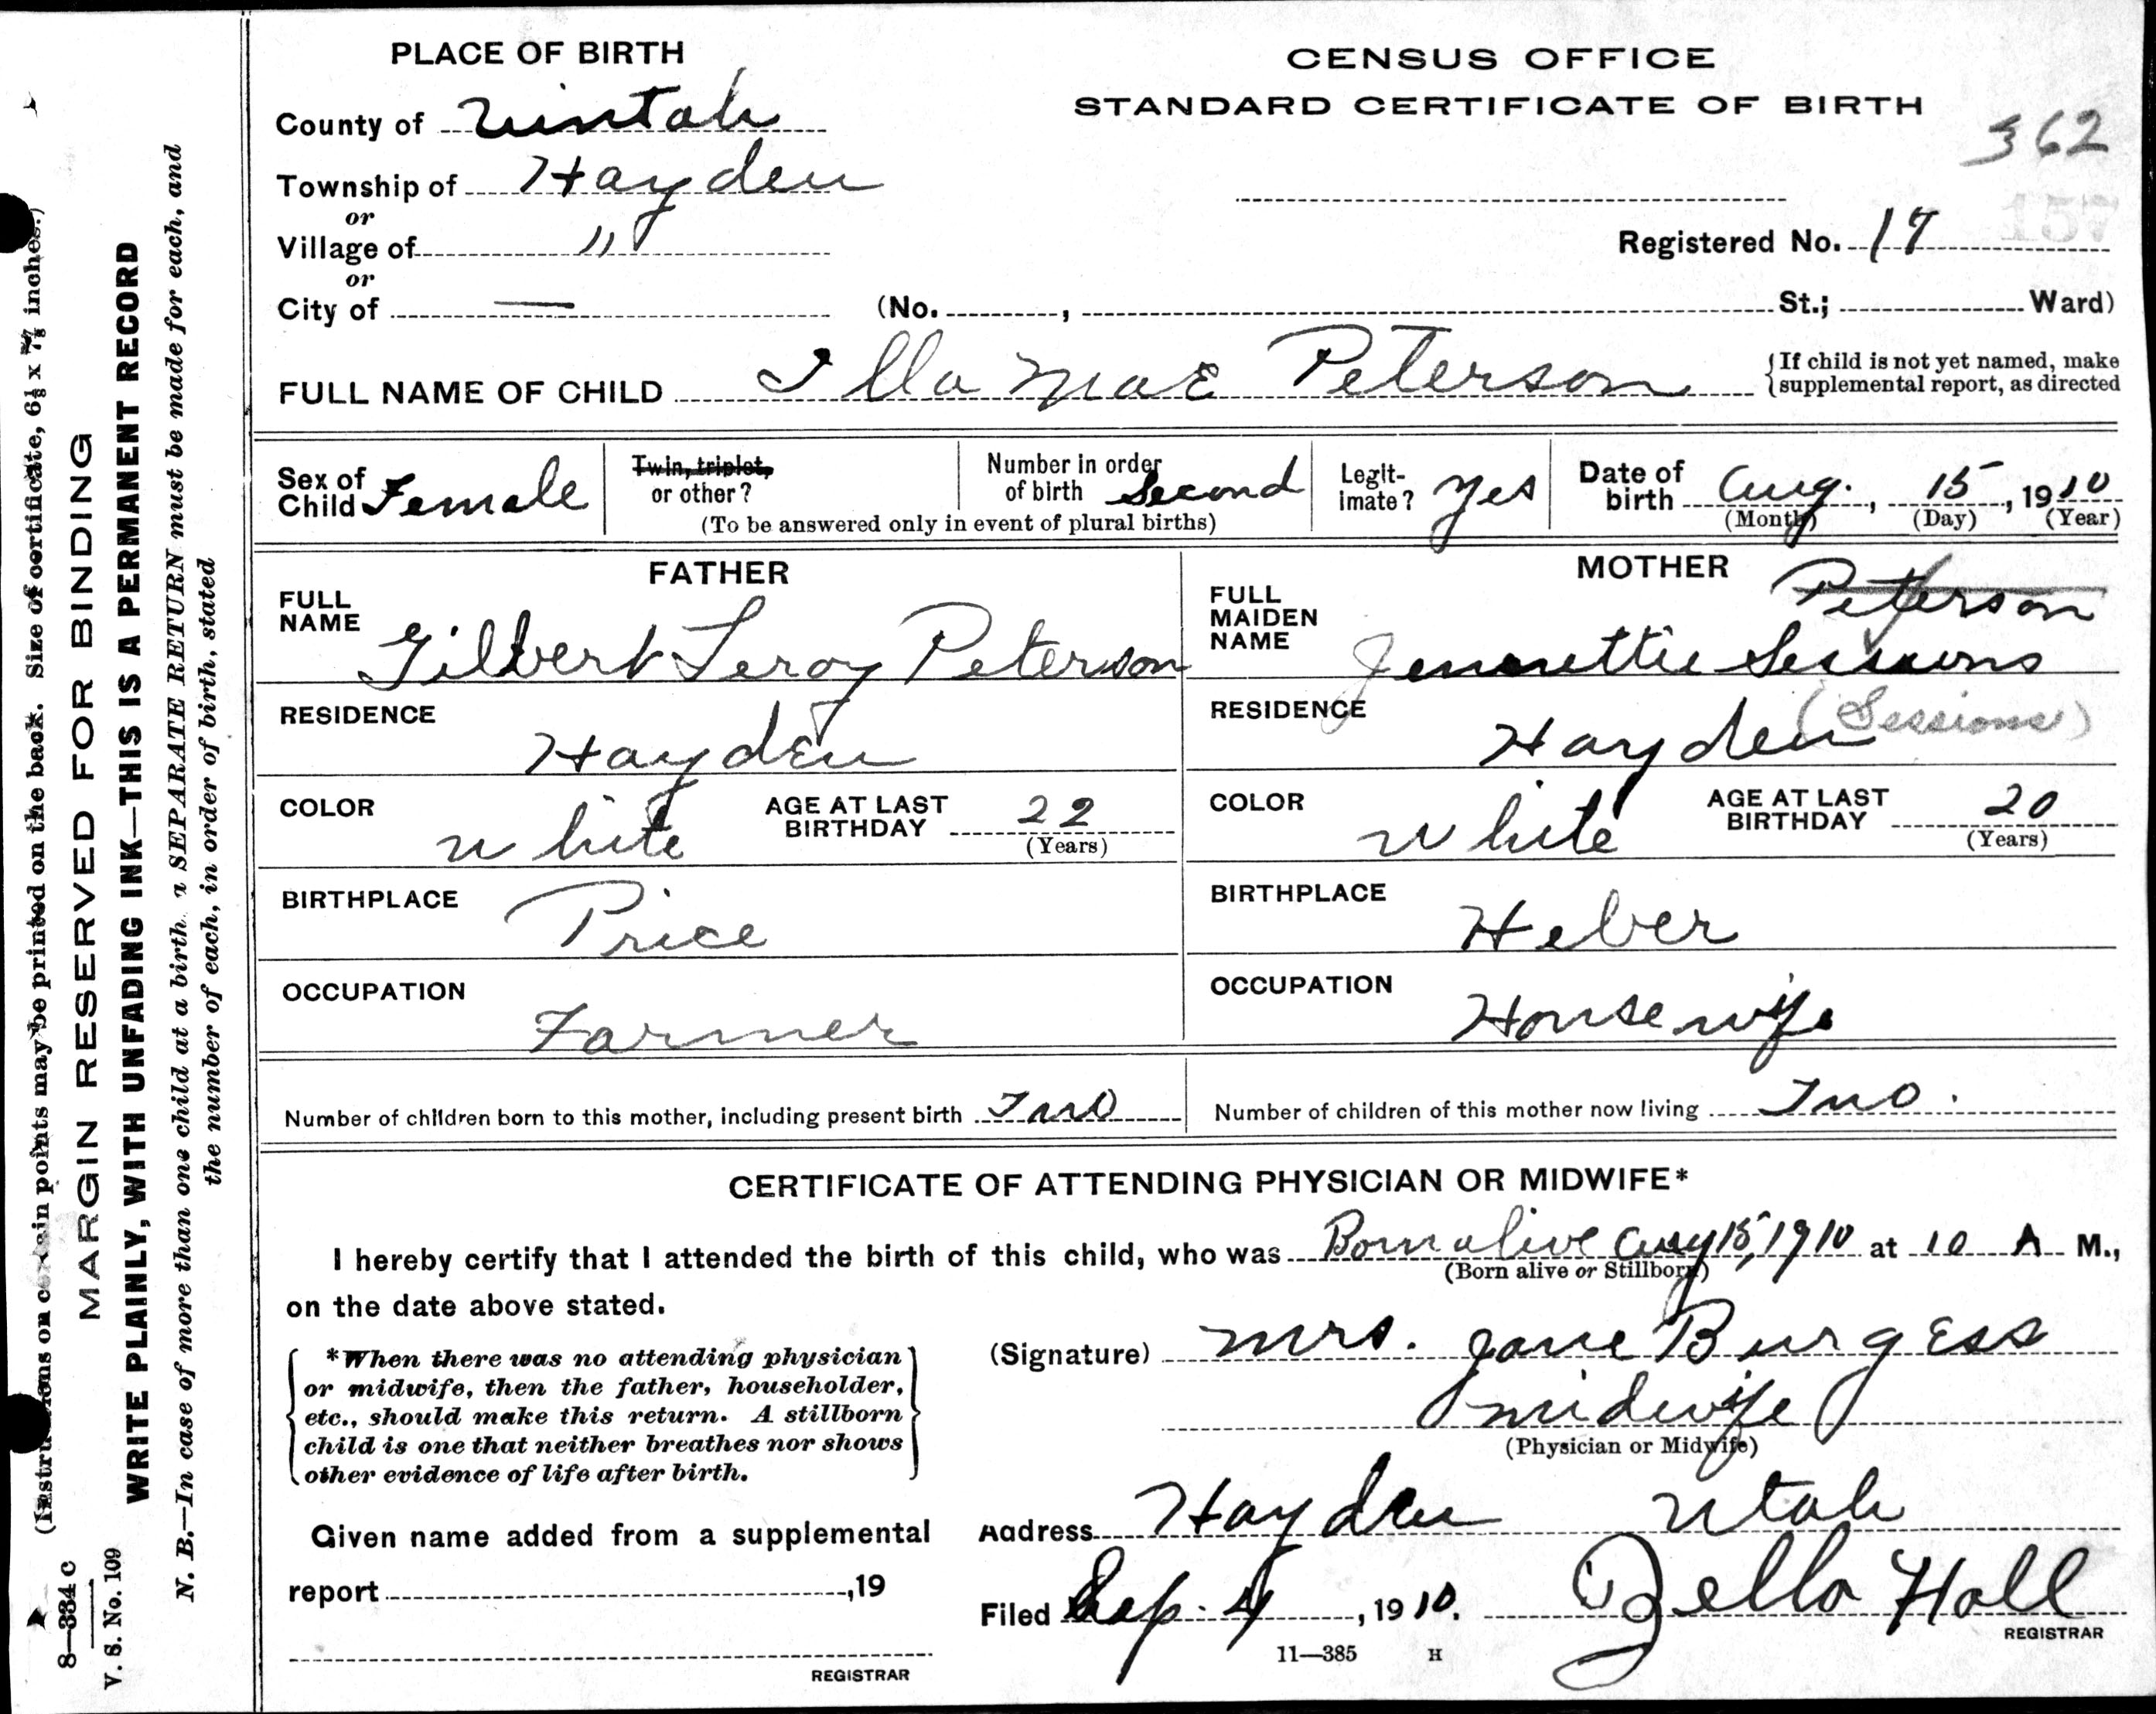 PLACE OF BIRTH
CENSUS OFFICE
STANDARD CERTIFICATE OF BIRTH
362
County of Uintah
Township of Hayden
or
Village of "
157
Registered No. 17
or
City of — (No. , St.; Ward)
FULL NAME OF CHILD Illa Mae Peterson
{If child is not yet named, make
supplemental report, as directed
Sex of
Child Female
Twin, triplet,
or other?
Number in order
of birth Second
(To be answered only in event of plural births)
Legit-
imate? yes
Date of
birth Aug. , 15 , 1910
(Month) (Day) (Year)
FATHER
FULL
NAME
Gilbert Leroy Peterson
RESIDENCE
Hayden
COLOR
White
AGE AT LAST
BIRTHDAY 22
(Years)
BIRTHPLACE
Price
OCCUPATION
Farmer
MOTHER
FULL
MAIDEN
NAME
Peterson
Jennettie Sessions
(Sessions)
RESIDENCE
Hayden
COLOR
White
AGE AT LAST
BIRTHDAY 20
(Years)
BIRTHPLACE
Heber
OCCUPATION
Housewife
Number of children born to this mother, including present birth Two
Number of children of this mother now living Two.
CERTIFICATE OF ATTENDING PHYSICIAN OR MIDWIFE*
I hereby certify that I attended the birth of this child, who was Born alive Aug 15, 1910 at 10 A M.,
(Born alive or Stillborn)
on the date above stated.
*When there was no attending physician
or midwife, then the father, householder,
etc., should make this return. A stillborn
child is one that neither breathes nor shows
other evidence of life after birth.
(Signature) Mrs. Jane Burgess
Midwife
(Physician or Midwife)
Given name added from a supplemental
report ,19
REGISTRAR
Address Hayden Utah
Filed Sep. 4 , 1910. Zella Hall
REGISTRAR
11—385 H
(Instructions on certain points may be printed on the back. Size of certificate, 6½ x 7⅞ inches.)
MARGIN RESERVED FOR BINDING
WRITE PLAINLY, WITH UNFADING INK—THIS IS A PERMANENT RECORD
N. B.—In case of more than one child at a birth a SEPARATE RETURN must be made for each, and
the number of each, in order of birth, stated
8—334 c
V. S. No. 109